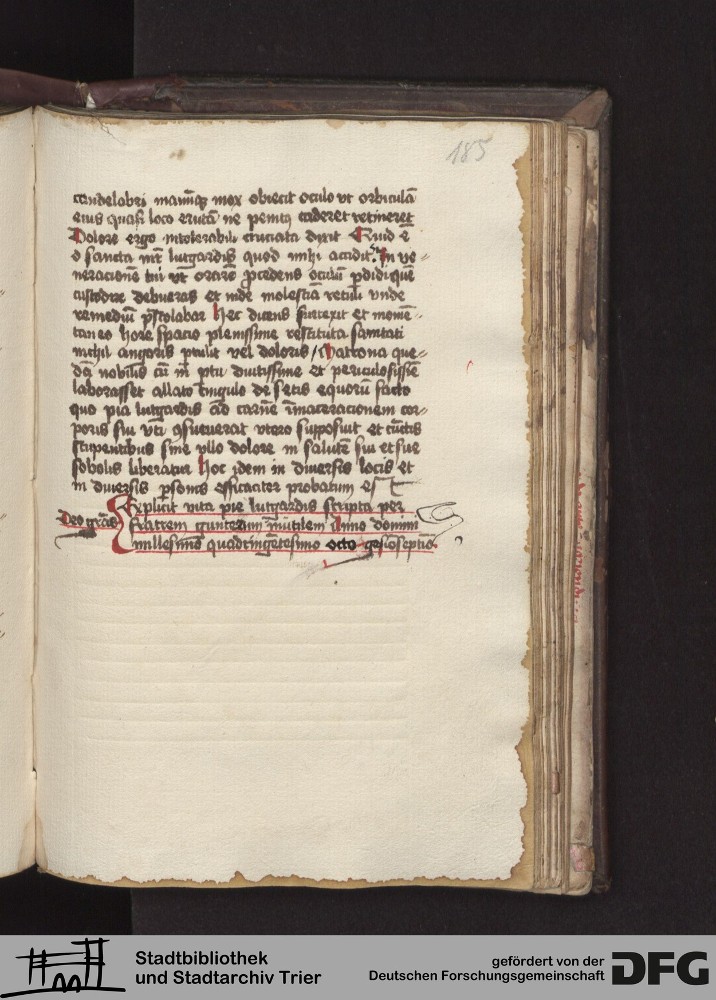 185
candelabri manūqꝫ mox obiecit oculo vt orbiculā
eius quasi loco erutā ne penitꝰ caderet retineret
Dolore ergo intolerabili cruciata dixit Quid ē
o sancta mr̄ lutgardis quod mihi accidit In ve-
neracionē tui vt orarē p̄cedens oculū p̄didi quē
custodire debueras et inde molestiā retuli vnde
remediū p̄stolabar Hec dicens surrexit et momē-
taneo hore spacio plenissime restituta sanitati
nichil angoris ptulit vel doloris Matrona que-
dā nobilis cū in ptu diutissime et periculosissīe
laborasset allato cingulo de setis equorū facto
quo pia lutgardis ad carnē maceracionem cor-
poris sui vti ꝯsueuerat vtero supposuit et cūctis
stupentibus sine vllo dolore in salutē sui et sue
sobolis liberatur Hoc idem in diuersis locis et
in diuersis ꝑsonis efficaciter probatum est
Explicit vita pie lutgardis scripta per
Deo grās fratrem guntherum inutilem Anno domini
millesimo quadringētesimo octogesioseptīo
Stadtbibliothek
und Stadtarchiv Trier
gefördert von der
Deutschen Forschungsgemeinschaft DFG